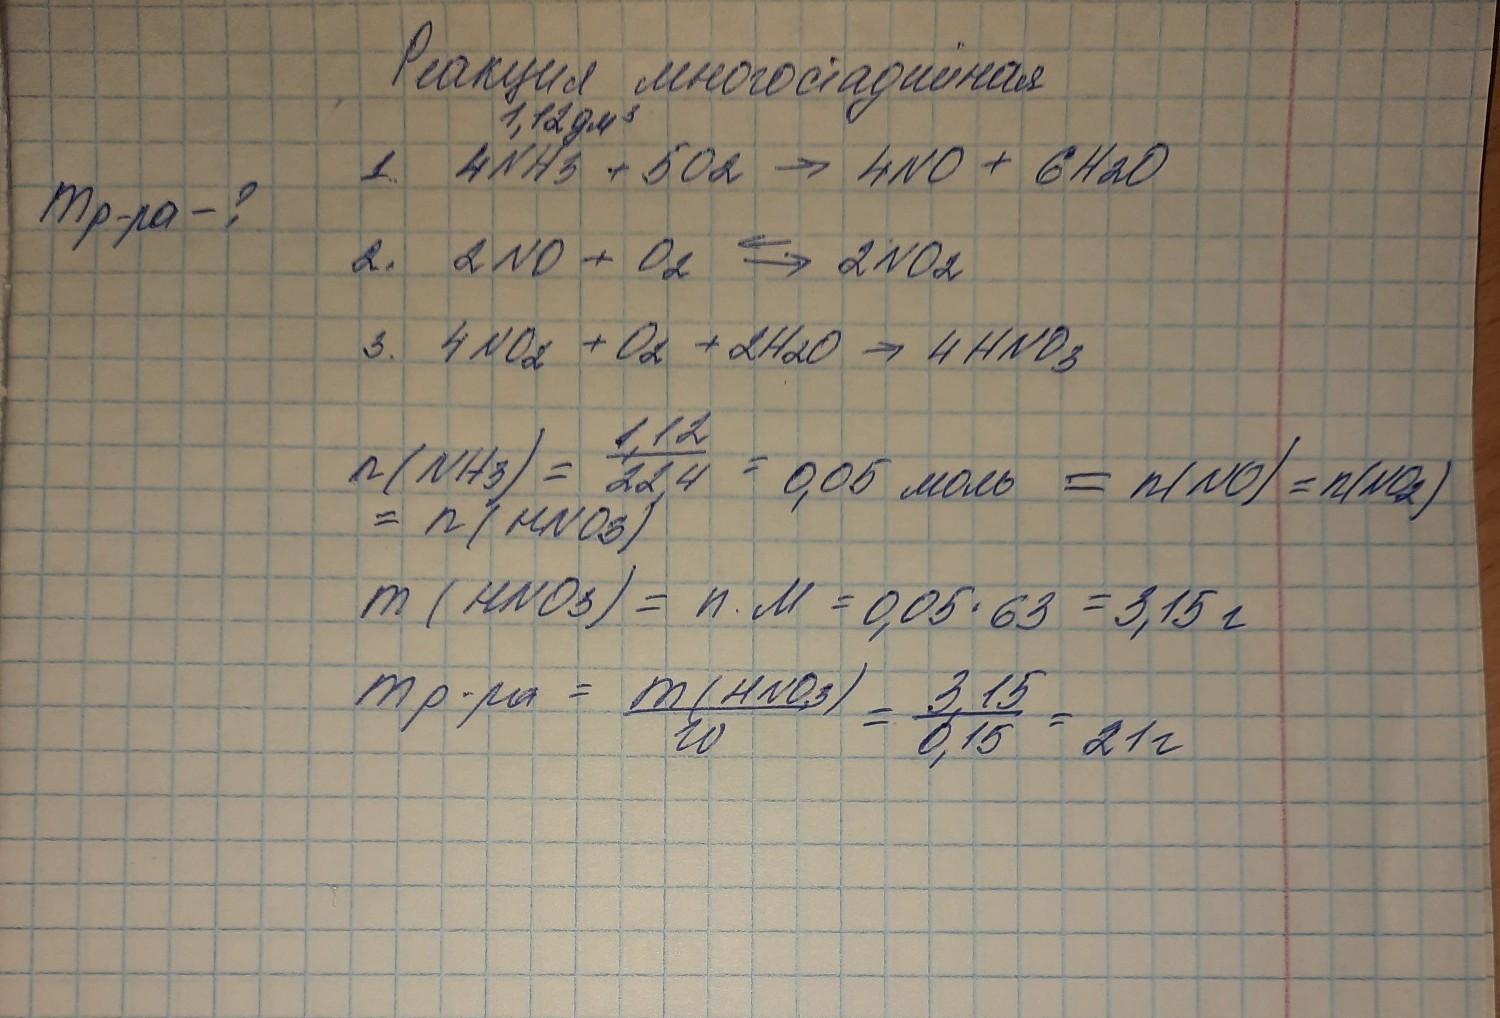 Реакция многостадийная
1,12 дм³
1. 4NH3 + 5O2 → 4NO + 6H2O
mр-ра - ?
2. 2NO + O2 ⇆ 2NO2
3. 4NO2 + O2 + 2H2O → 4HNO3
n(NH3) = 1,12/22,4 = 0,05 моль = n(NO) = n(NO2)
= n(HNO3)
m(HNO3) = n·M = 0,05·63 = 3,15 г
mр-ра = m(HNO3)/w = 3,15/0,15 = 21 г